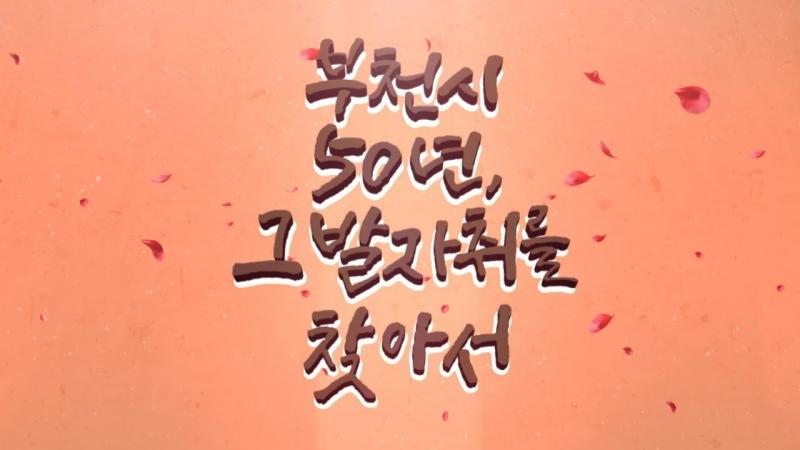 부천시
50년,
그 발자취를
찾아서